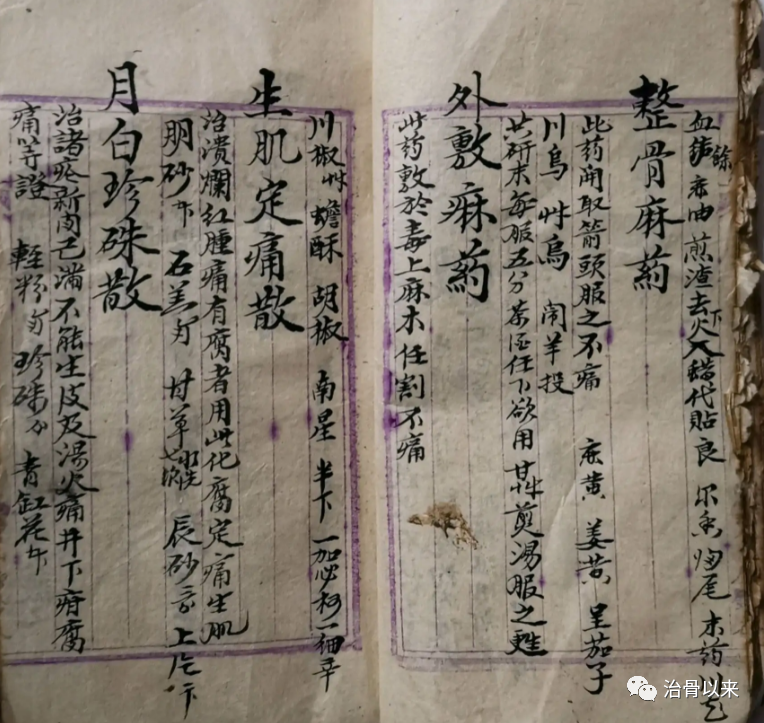 血餘 麻油煎渣去火下入醋代貼良 尔香 归尾 末药
整骨麻药
此药開取箭頭服之不痛 麻黄 姜黄 呈茄子
川烏 艸烏 闹羊投
共研末每服五分茶酒任下欲用甘艸煎湯服之甦
外敷麻药
此药敷於毒上麻木任割不痛
川椒 艸 蟾酥 胡椒 南星 半下 一加必 一细辛
生肌定痛散
治潰爛红腫痛有腐者用此化腐定痛生肌
明砂 石羔 甘草 辰砂 上
月白珍硃散
治諸瘡新肉已满不能生皮及湯火痛并下疳腐
痛等證 輕粉 珍硃 青缸花
治骨以来